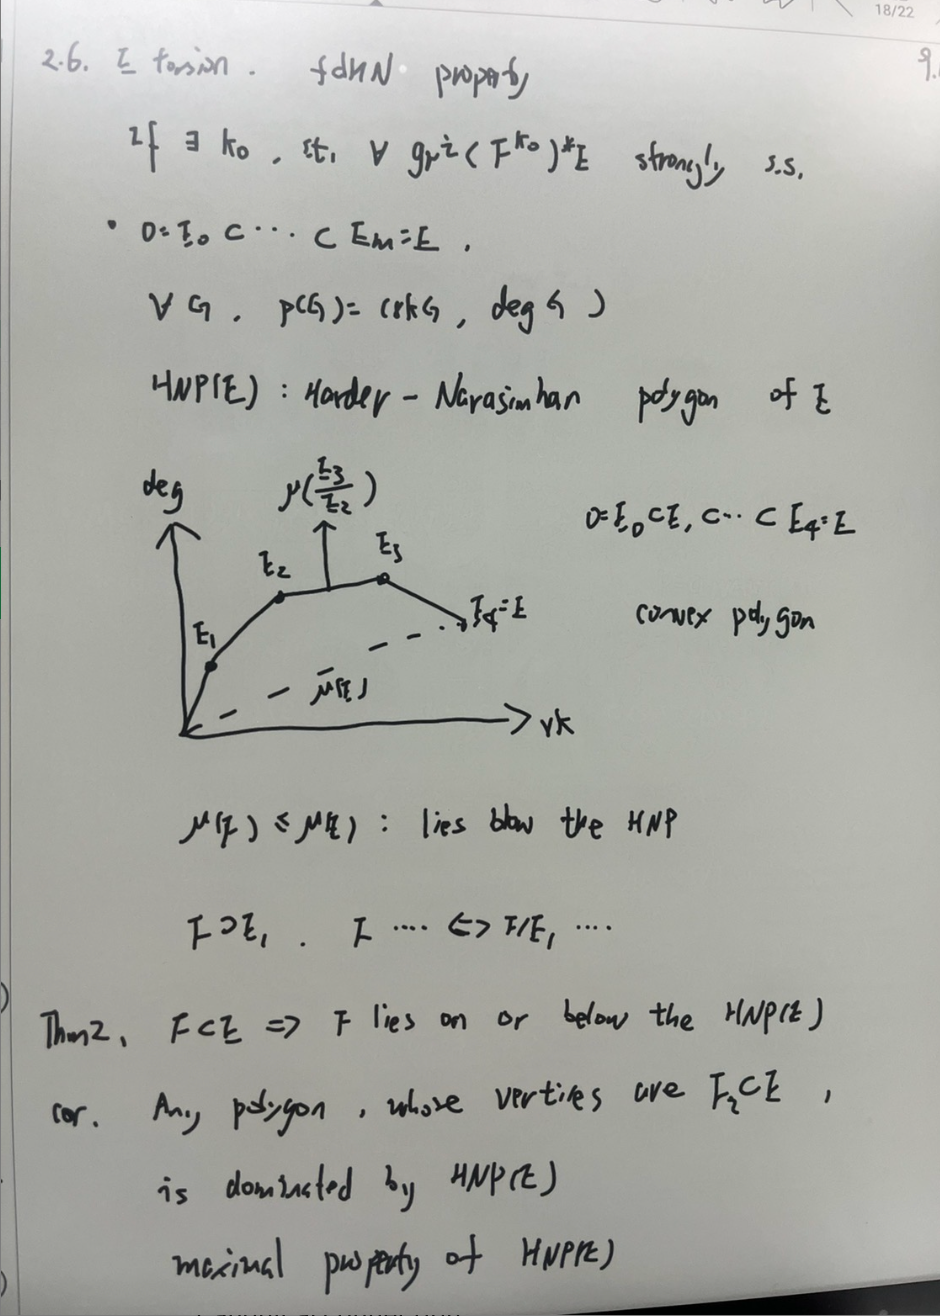 18/22
2.6. E torsion. fdHN property
If ∃ k₀, s.t. ∀ grⁱ(F^{k₀})*E strongly s.s.
• 0=E₀ ⊂ ··· ⊂ Em=E.
∀ G, p(G)=(rkG, deg G)
HNP(E): Harder-Narasimhan polygon of E
deg μ(E₃/E₂)
0=E₀⊂E₁⊂··⊂E₄=E
E₂ E₃
E₄=E convex polygon
E₁
μ(E)
rk
μ(F) ≤ μ(E): lies blow the HNP
F⊃E₁. F ···· ⇔ F/E₁ ····
Thm2. F⊂E ⇒ F lies on or below the HNP(E)
cor. Any polygon, whose vertices are ⊂E,
is dominated by HNP(E)
maximal property of HNP(E)